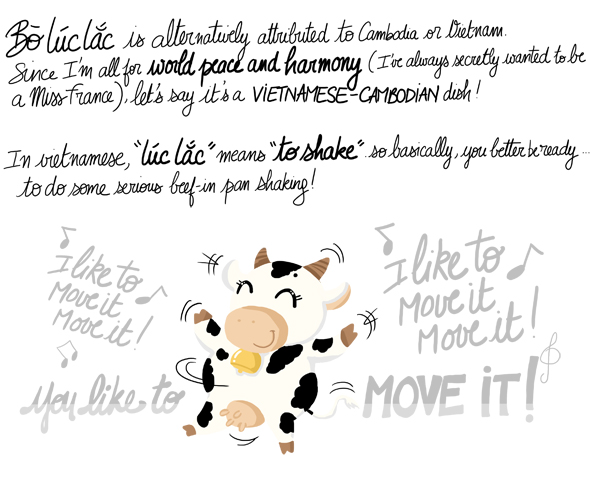 Bò lúc lắc is alternatively attributed to Cambodia or Vietnam.
Since I'm all for world peace and harmony (I've always secretly wanted to be
a Miss-France), let's say it's a VIETNAMESE-CAMBODIAN dish!
In vietnamese, "lúc lắc" means "to shake" so basically, you better be ready...
to do some serious beef-in pan shaking!
I like to
Move it
Move it!
I like to
Move it
Move it!
You like to
MOVE iT!